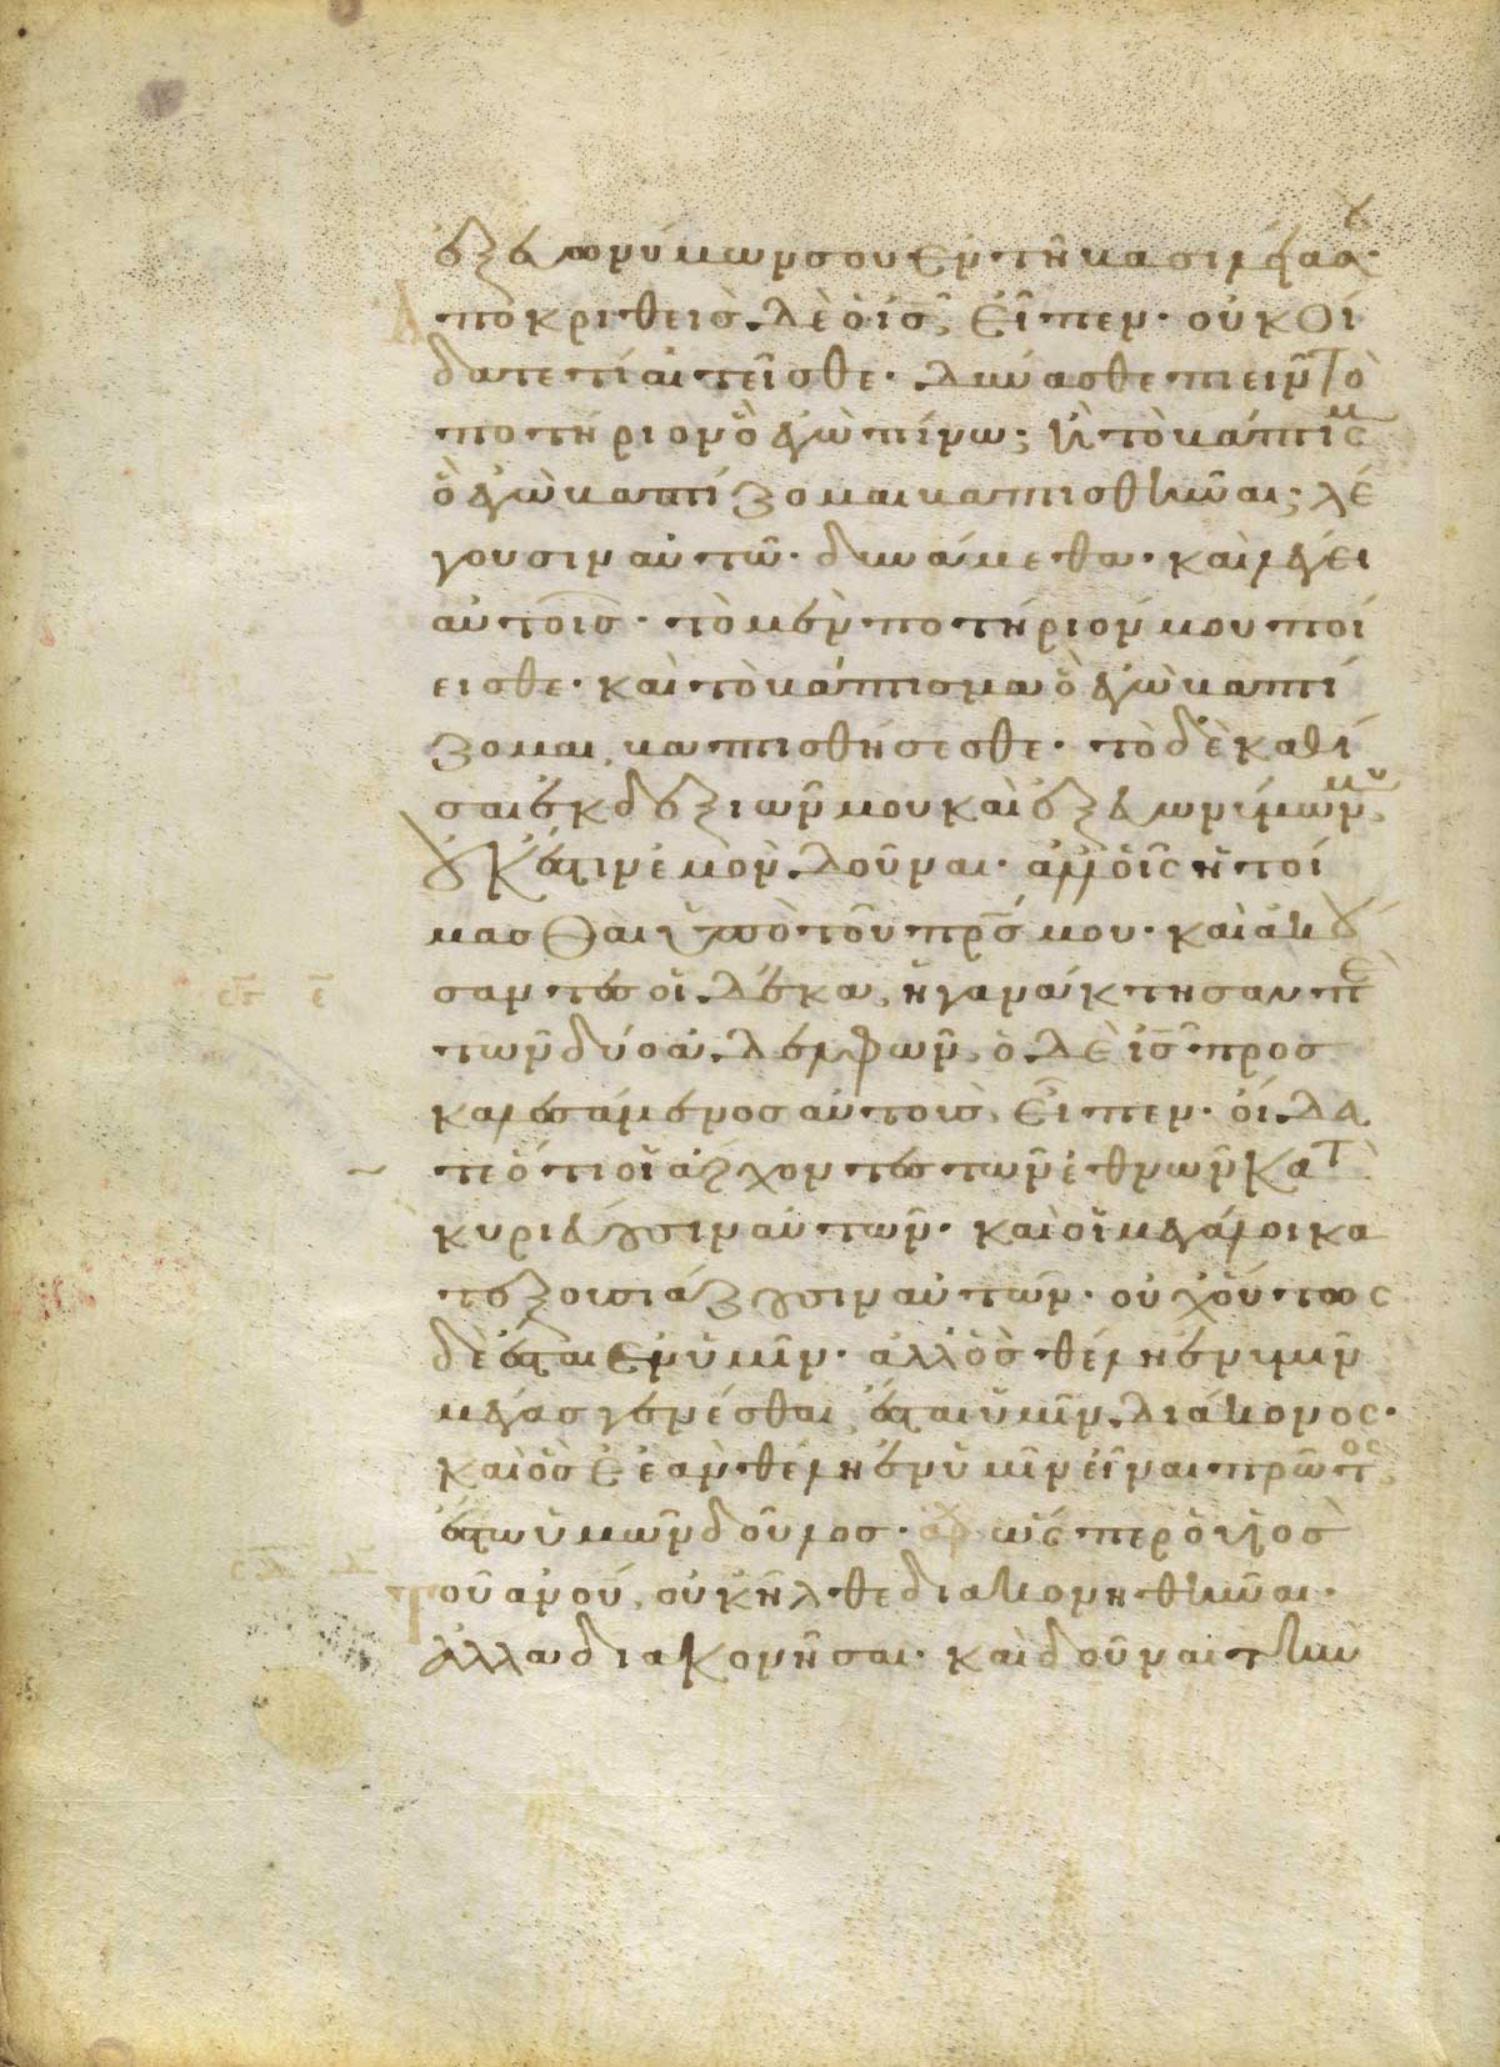 ἐξ εὐωνύμων σου ἐν τῆ βασιλεία σου·
Ἀποκριθεὶς δὲ ὁ ις̅, εἶπεν· οὐκ οἴ
δατε τί αἰτεῖσθε· δύνασθε πιεῖν τὸ
ποτήριον ὃ ἐγὼ πίνω; ἢ τὸ βάπτισμ
ὃ ἐγὼ βαπτίζομαι βαπτισθῆναι; λέ
γουσιν αὐτῶ· δυνάμεθα· καὶ λέγει
αὐτοῖς· τὸ μὲν ποτήριόν μου πί
εισθε· καὶ τὸ βάπτισμα ὃ ἐγὼ βαπτί
ζομαι, βαπτισθήσεσθε· τὸ δὲ καθί
σαι ἐκ δεξιῶν μου καὶ ἐξ εὐωνύμων μου,
οὐκ ἔστιν ἐμὸν δοῦναι· ἀλλ' οἷς ἡτοί
μασθαι ὑπὸ τοῦ πρ̅ς μου· καὶ ἀκού
σαντες οἱ δέκα, ἠγανάκτησαν πε
τῶν δύο ἀδελφῶν, ὁ δὲ ις̅ προσ
καλεσάμενος αὐτοὺς, εἶπεν· οἴδα
τε ὅτι οἱ ἄρχοντες τῶν ἐθνῶν κατ
κυριεύουσιν αὐτῶν· καὶ οἱ μεγάλοι κα
τεξουσιάζουσιν αὐτῶν· οὐχ οὕτως
δὲ ἔσται ἐν ὑμῖν· ἀλλ' ὃς θέλη ἐν ὑμῖν
μέγας γενέσθαι, ἔσται ὑμῖν διάκονος·
καὶ ὃς ἐὰν θέλη ἐν ὑμῖν εἶναι πρῶτος,
ἔστω ὑμῶν δοῦλος· ὥσπερ ὁ υἱὸς
Τοῦ ανου, οὐκ ἦλθε διακονηθῆναι·
ἀλλὰ διακονῆσαι· καὶ δοῦναι τὴν